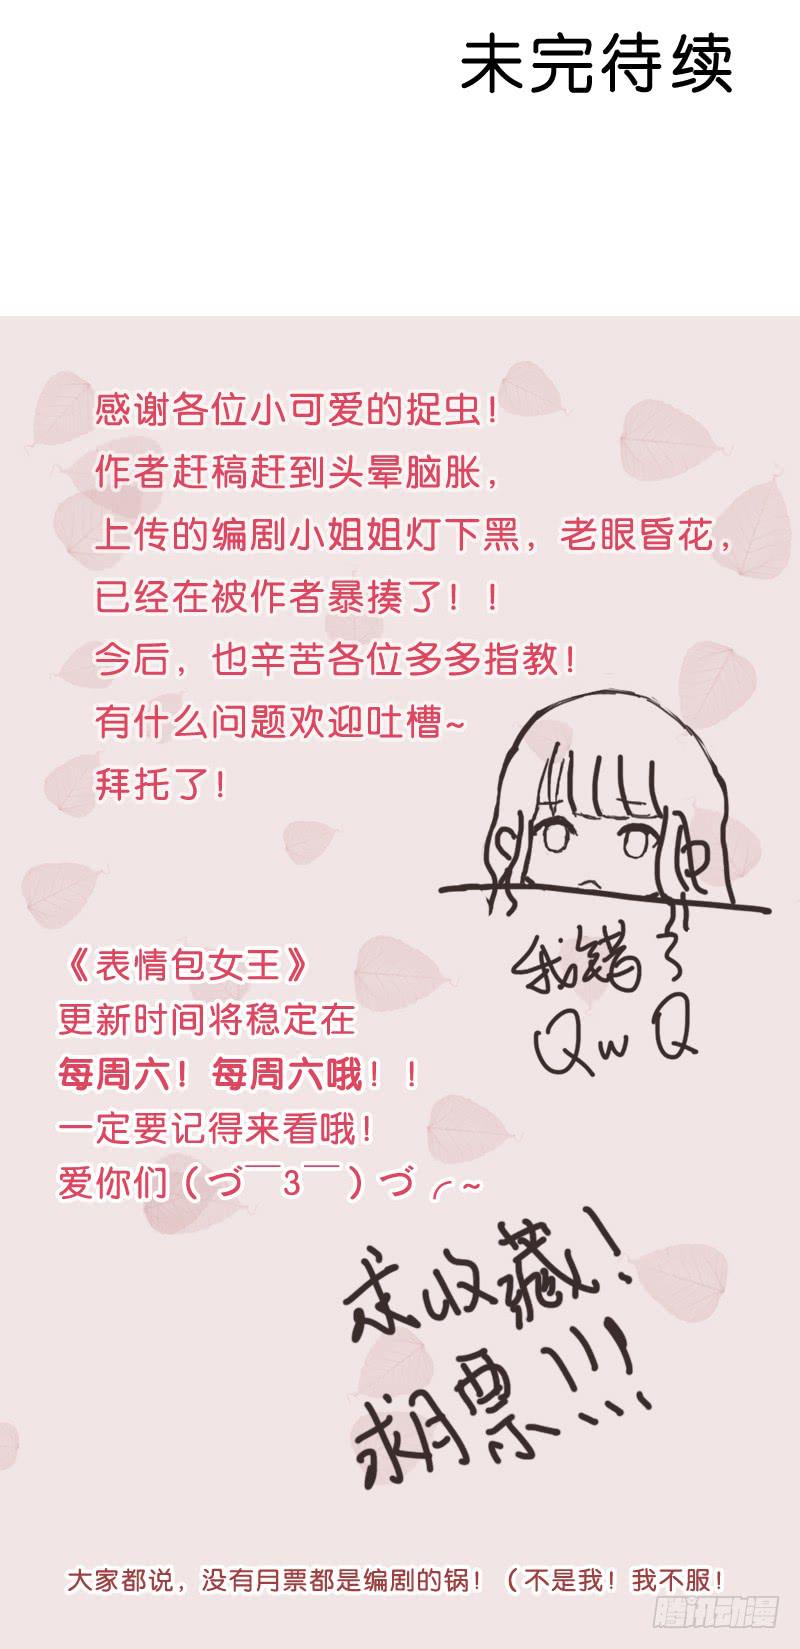 未完待续
感谢各位小可爱的捉虫！
作者赶稿赶到头晕脑胀，
上传的编剧小姐姐灯下黑，老眼昏花，
已经在被作者暴揍了！！
今后，也辛苦各位多多指教！
有什么问题欢迎吐槽~
拜托了！
我错了
QwQ
《表情包女王》
更新时间将稳定在
每周六！每周六哦！！
一定要记得来看哦！
爱你们（づ￣3￣）づ╭~
求收藏！
求月票！！！
大家都说，没有月票都是编剧的锅！（不是我！我不服！
腾讯动漫